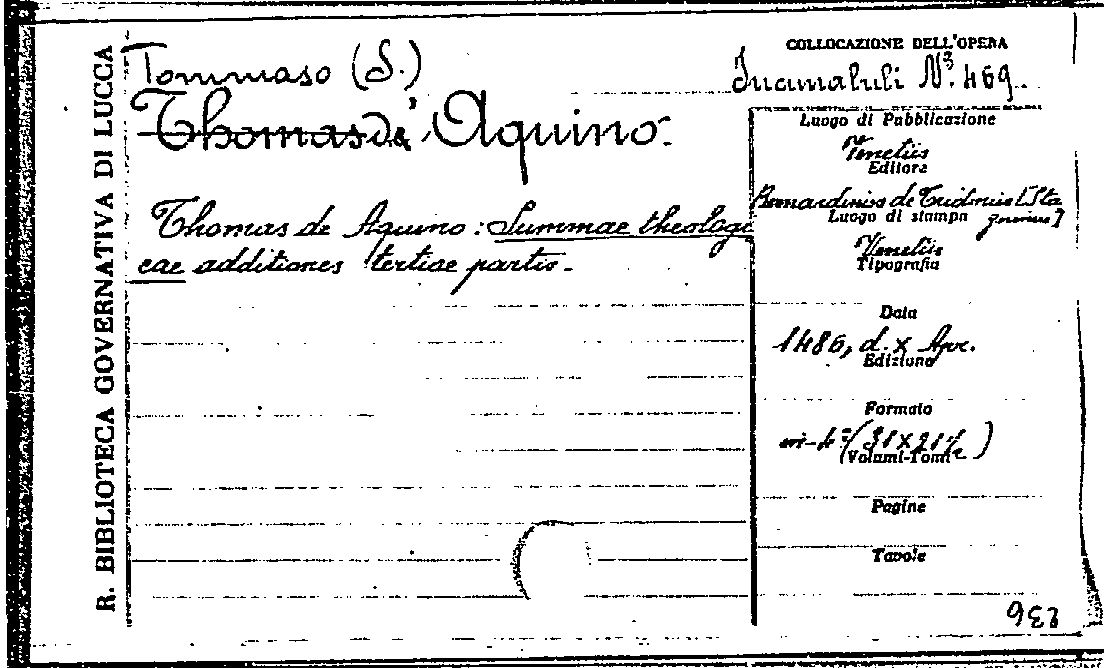 R. BIBLIOTECA GOVERNATIVA DI LUCCA
Tommaso (S.)
Thomas de' Aquino.
Thomas de Aquino: Summae theologi
cae additiones tertiae partis.
COLLOCAZIONE DELL'OPERA
Incunaluli N.º 469.
Luogo di Pubblicazione
Venetiis
Editore
Bernardinus de Tridino [Sta
gninus]
Luogo di stampa
Venetiis
Tipografia
Data
1486, d. X Apr.
Edizione
Formato
in-4º (31 X 21 ½)
Volumi-Tomi
Pagine
Tavole